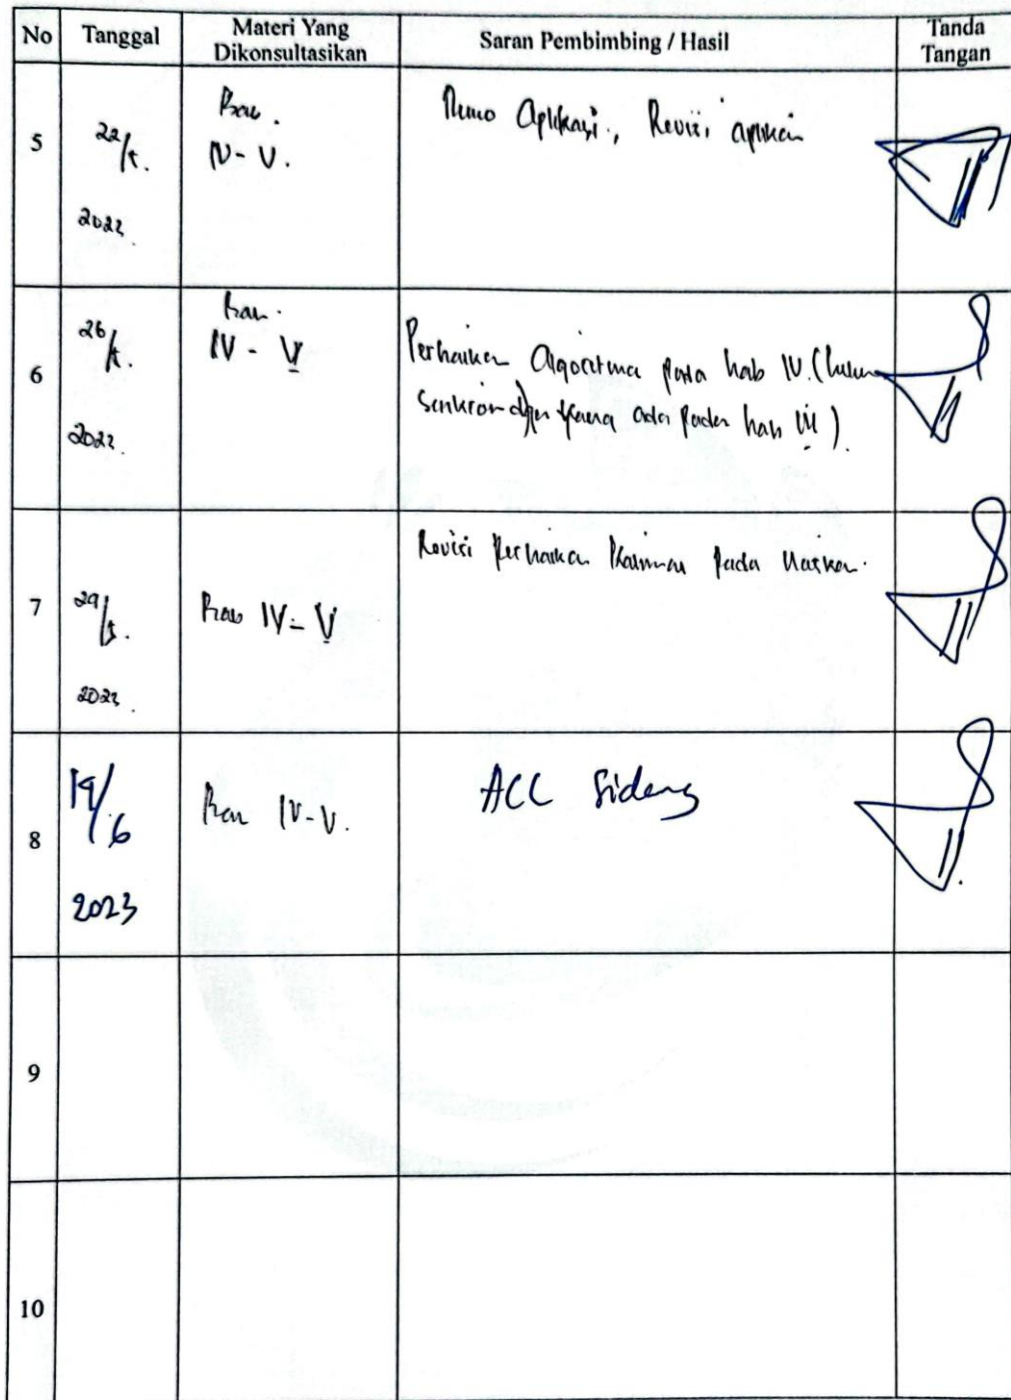 No Tanggal Materi Yang Dikonsultasikan Saran Pembimbing / Hasil Tanda Tangan
5 22/5. 2023. Bab. IV - V. Demo Aplikasi, Revisi aplikasi
6 26/5. 2023. Bab. IV - V Perbaiken Algoritma pada bab IV. (belum
sinkron dgn yang ada pada bab III).
7 29/5. 2023. Bab IV - V Revisi Perbaikan pada
8 19/6 2023 Bab IV-V. ACC Sidang
9
10